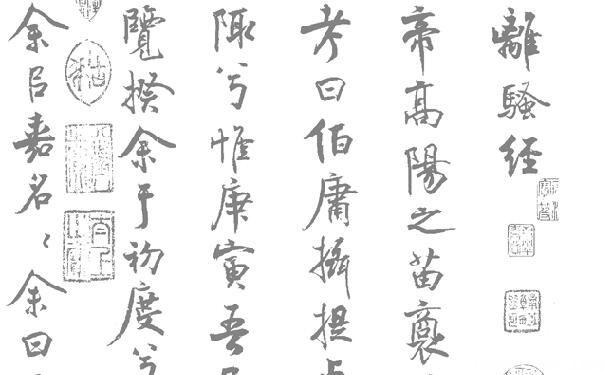 離騷經
帝高陽之苗裔
考曰伯庸攝提
陬兮惟庚寅吾
覽揆余于初度兮
余㠯嘉名〻余曰